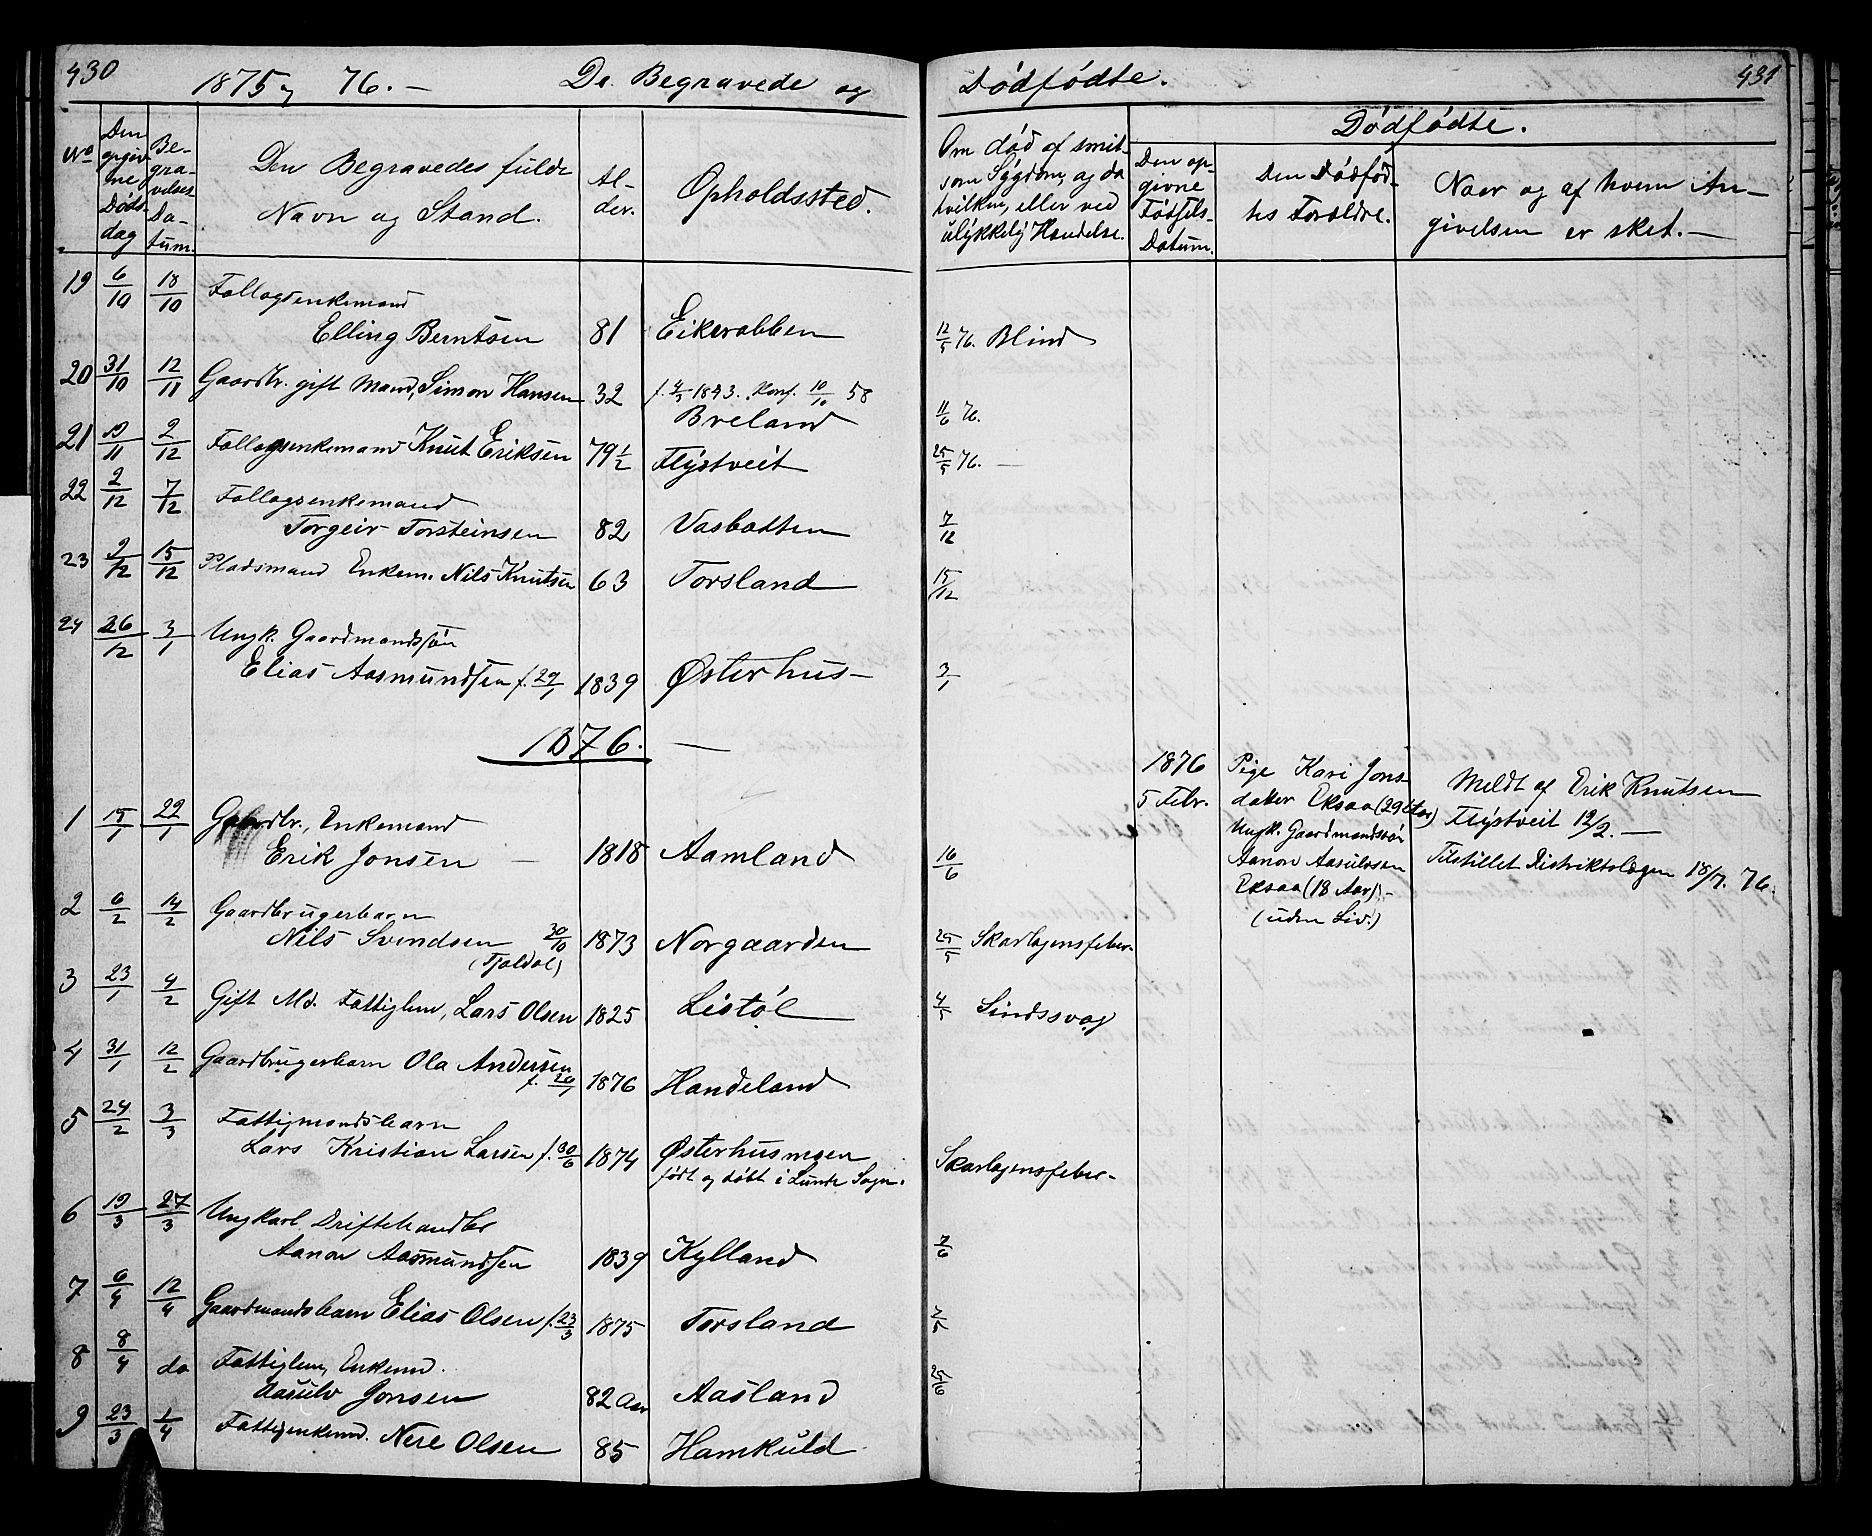 430
1875 og 76. — De Begravede og
No
Den opgivne Døds-dag
Be-gravelses Da-tum.
Den Begravedes fulde Navn og Stand.
Al-der.
Opholdssted.
19 6/10 18/10 Follogsenkemand
Elling Berntsen 81 Eikerabben
20 31/10 12/11 Gaardbr. gift Mand, Simon Hansen 32 f. 4/5 1843. Konf. 10/10 58
Breland
21 19/11 2/12 Follogsenkemand Knut Eriksen 79 1/2 Fløstveit
22 2/12 7/12 Follogsenkemand
Torgeir Torsteinsen 82 Vasbotten
23 9/12 15/12 Pladsmand Enkem. Nils Knutsen 63 Torsland
24 26/12 3/1 Ungk. Gaardmandssøn
Elias Aasmundsen f. 29/1 1839 Østerhus —
1876. —
1 15/1 22/1 Gaardbr., Enkemand
Erik Jonsen — 1818 Aamland
2 6/2 14/2 Gaardbrugerbarn
Nils Svendsen 30/10 1873 Norgaarden
(Tjaldal)
3 23/1 4/2 Gift Md. Fattiglem, Lars Olsen 1825 Listøl
4 31/1 12/2 Gaardbrugerbarn Ola Andersen
f. 20/1 1876 Handeland
5 24/2 3/3 Fattigmandsbarn
Lars Kristian Larsen f. 30/6 1874 Østerhusmoen
født og døbt i Lunde Sogn.
6 19/3 27/3 Ungkarl Driftehandler
Aanon Aasmundsen 1839 Kylland
7 6/4 12/4 Gaardmandsbarn Elias Olsen f. 23/3 1875 Torsland
8 8/4 do Fattiglem, Enkemd.
Aasulv Jonsen 82 Aar Aasland
9 23/3 1/4 Fattigenkemd. Nere Olsen 85 Hamkuld
Dødfødte. 431
Om død af smit-
som Sygdom, og da
hvilken, eller ved
ulykkelig Hændelse.
Dødfødte.
Den op-
givne
Fødsels-
Datum.
Den Dødfød-
tes Forældre.
Naar og af hvem An-
givelsen er sket. —
12/5 76. Blind
11/6 76.
25/5 76. —
7/12
15/12
3/1
1876
5 Febr.
Pige Kari Jons-
datter Eksaa (29 Aar)
Ungk. Gaardmandssøn
Aanon Aasulvsen
Eksaa (18 Aar) —
(uden Liv.)
Meldt af Erik Knutsen
Fløstveit 12/2. —
Tilstillet Distriktslægen 18/7. 76.
16/6
25/5 Skarlagensfeber.
4/5 Sindssvag
Skarlagensfeber.
7/6
7/5
25/6